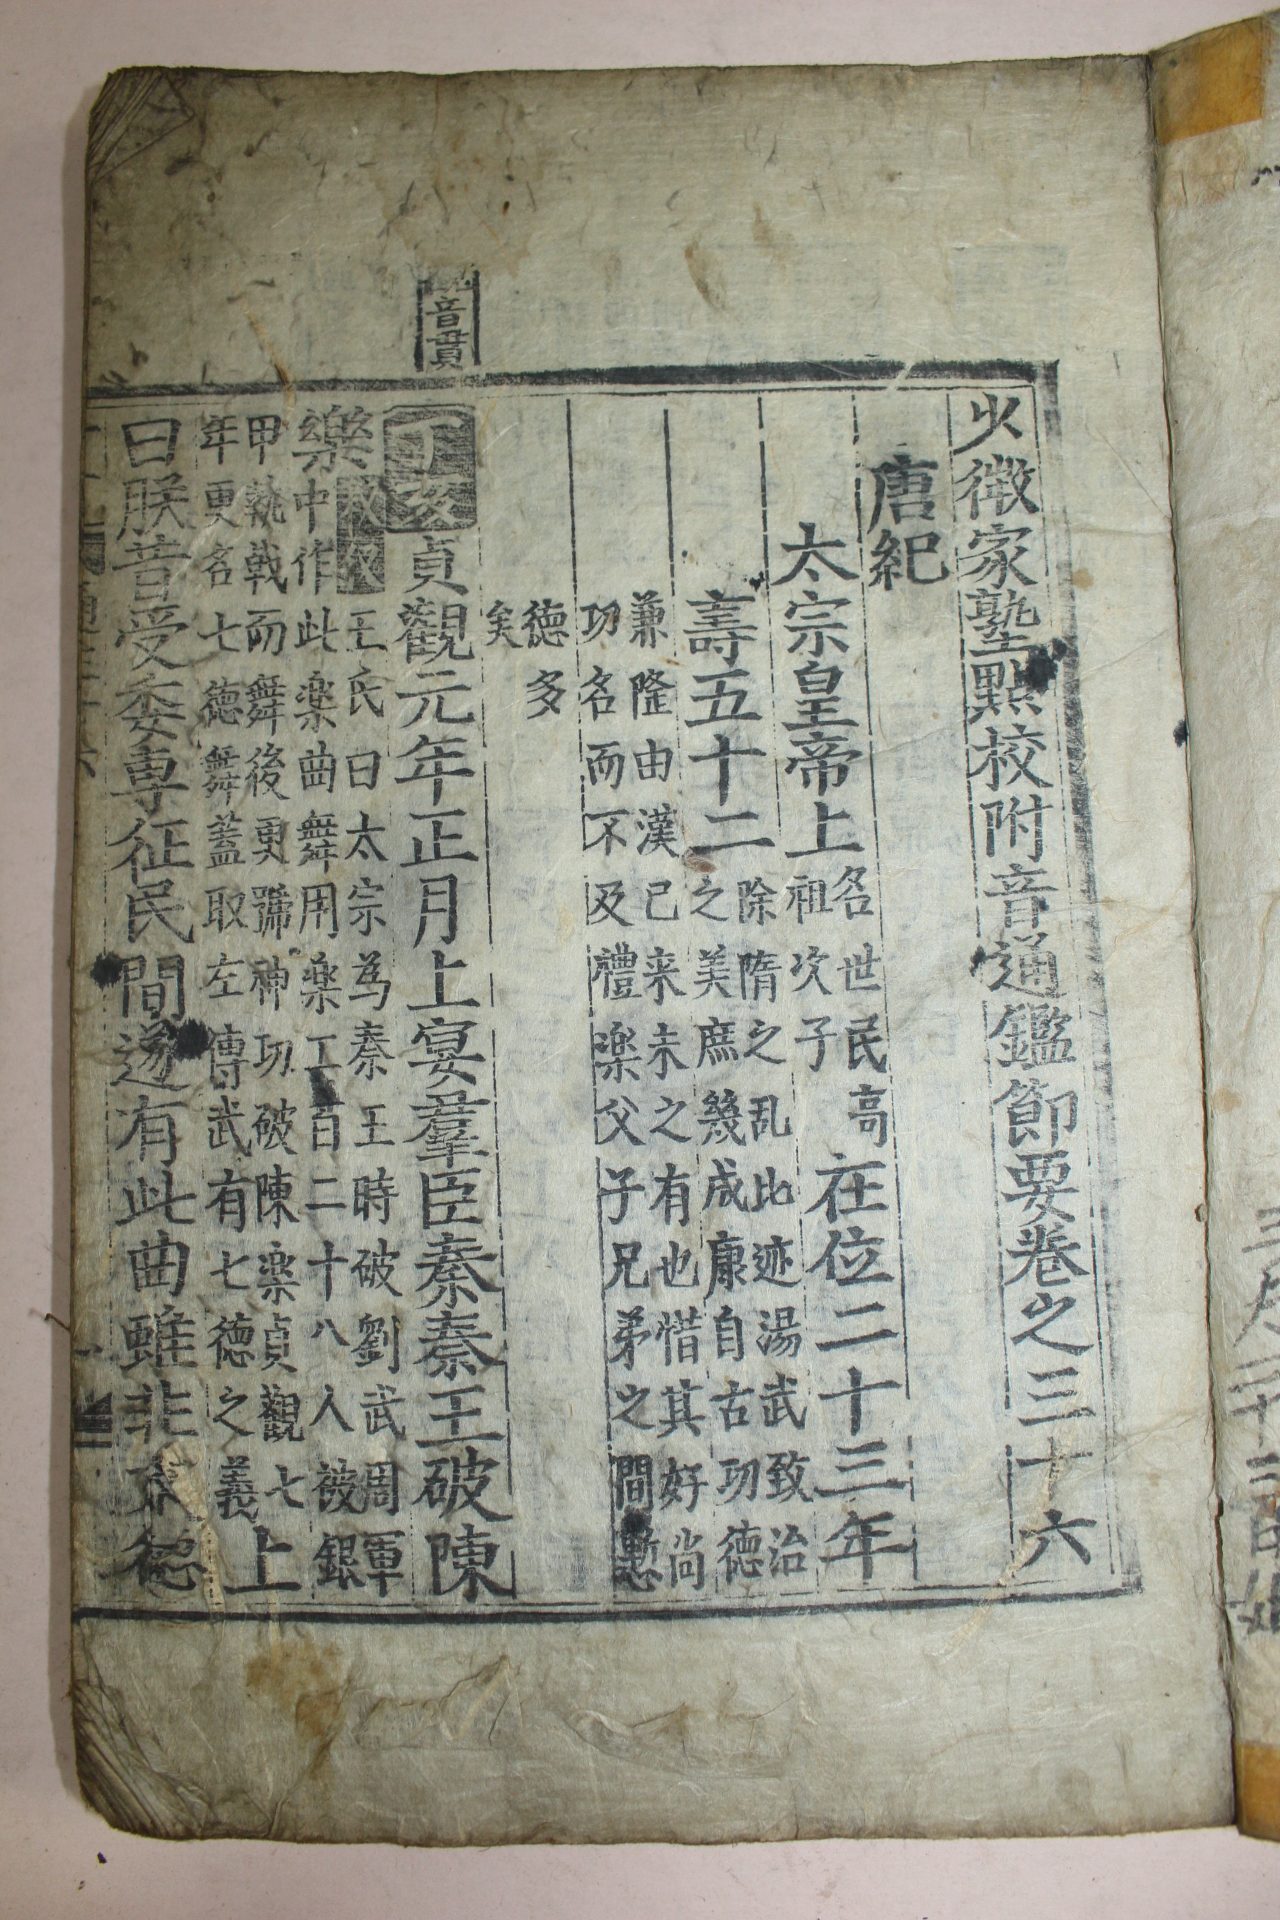 少微家塾點校附音通鑑節要卷之三十六
唐紀
太宗皇帝上
名世民高
祖次子
在位二十三年
壽五十二
除隋之乱比迹湯武致治
之美庶幾成康自古功德
兼隆由漢已来未之有也惜其好尚
功名而不及禮楽父子兄弟之間慙
德多
矣
觀音貫
丁亥貞觀元年正月上宴羣臣奏秦王破陳
樂
王氏曰太宗為秦王時破劉武周軍
中作此楽曲舞用楽工百二十八人被銀
甲執戟而舞後更號神功破陳楽貞觀七
年更名七德舞蓋取左傳武有七德之義
上
曰朕昔受委專征民間遂有此曲雖非文德